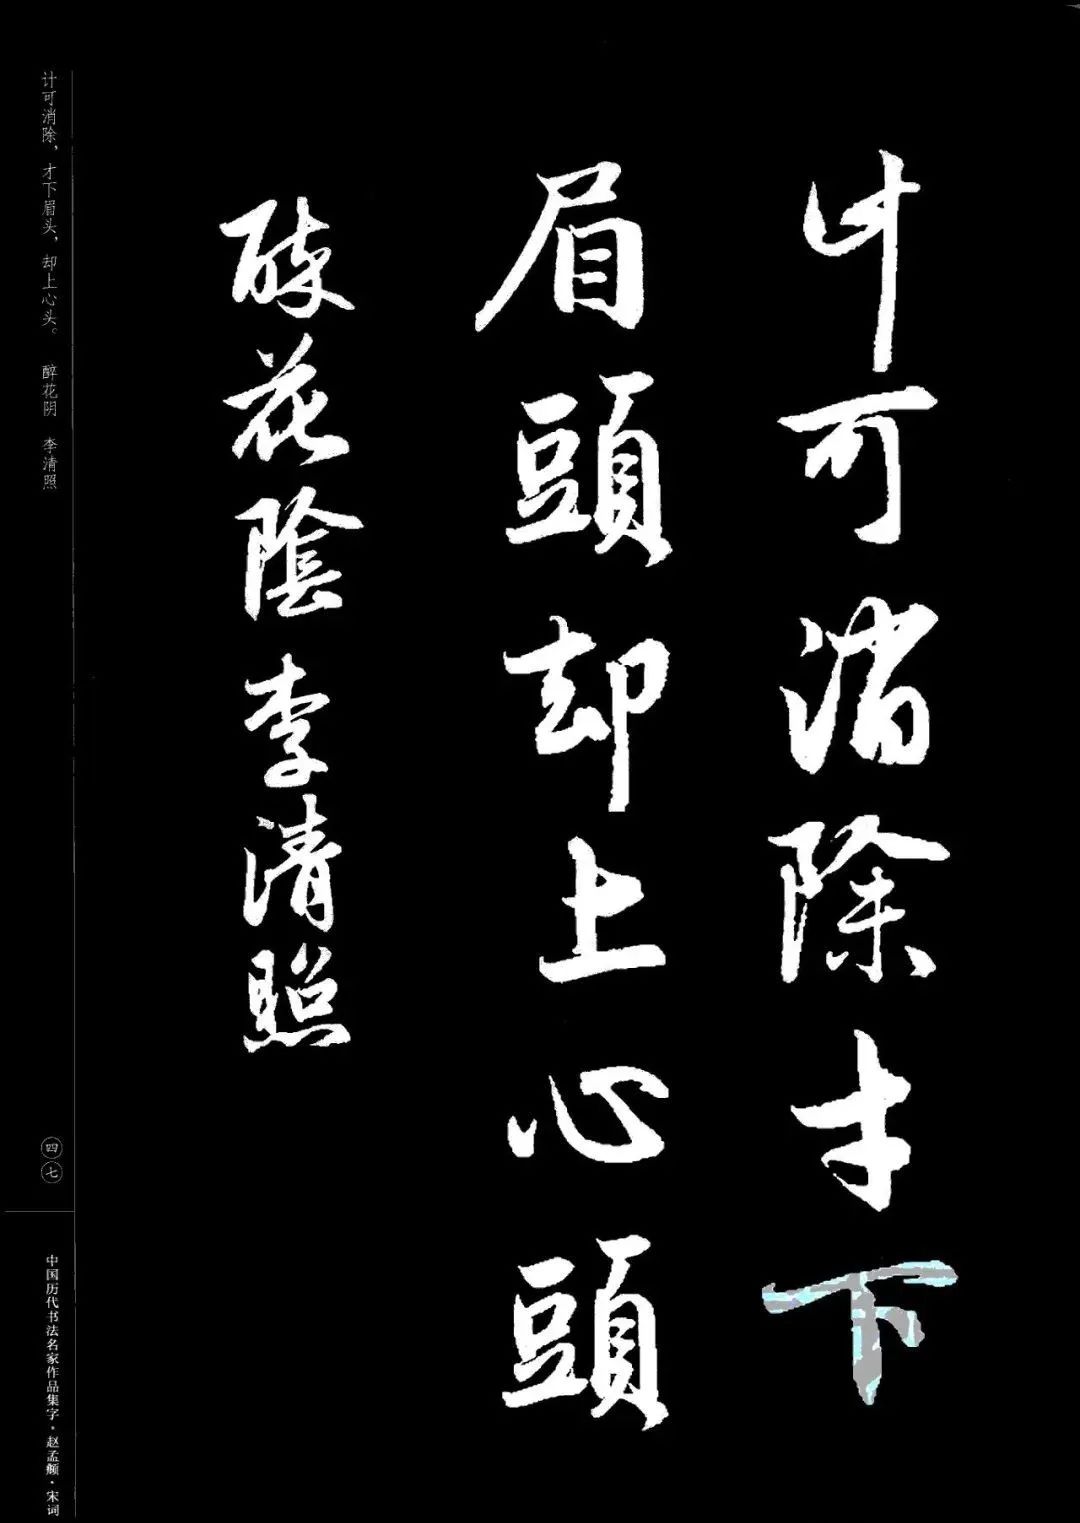 计可消除才下
眉頭却上心頭
醉花陰 李清照
计可消除，才下眉头，却上心头。 醉花阴 李清照
四七
中国历代书法名家作品集字·赵孟頫·宋词